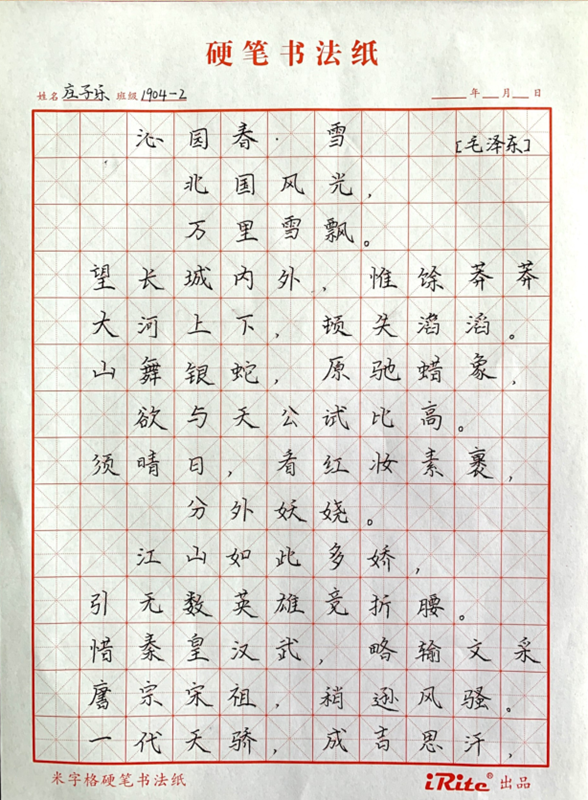 硬笔书法纸
姓名 庄子乐 班级 1904-2 年 月 日
沁国春·雪 [毛泽东]
北国风光，
万里雪飘。
望长城内外，惟馀莽莽
大河上下，顿失滔滔。
山舞银蛇，原驰蜡象，
欲与天公试比高。
须晴日，看红妆素裹，
分外妖娆。
江山如此多娇，
引无数英雄竞折腰。
惜秦皇汉武，略输文采
唐宗宋祖，稍逊风骚。
一代天骄，成吉思汗，
米字格硬笔书法纸 iRite® 出品